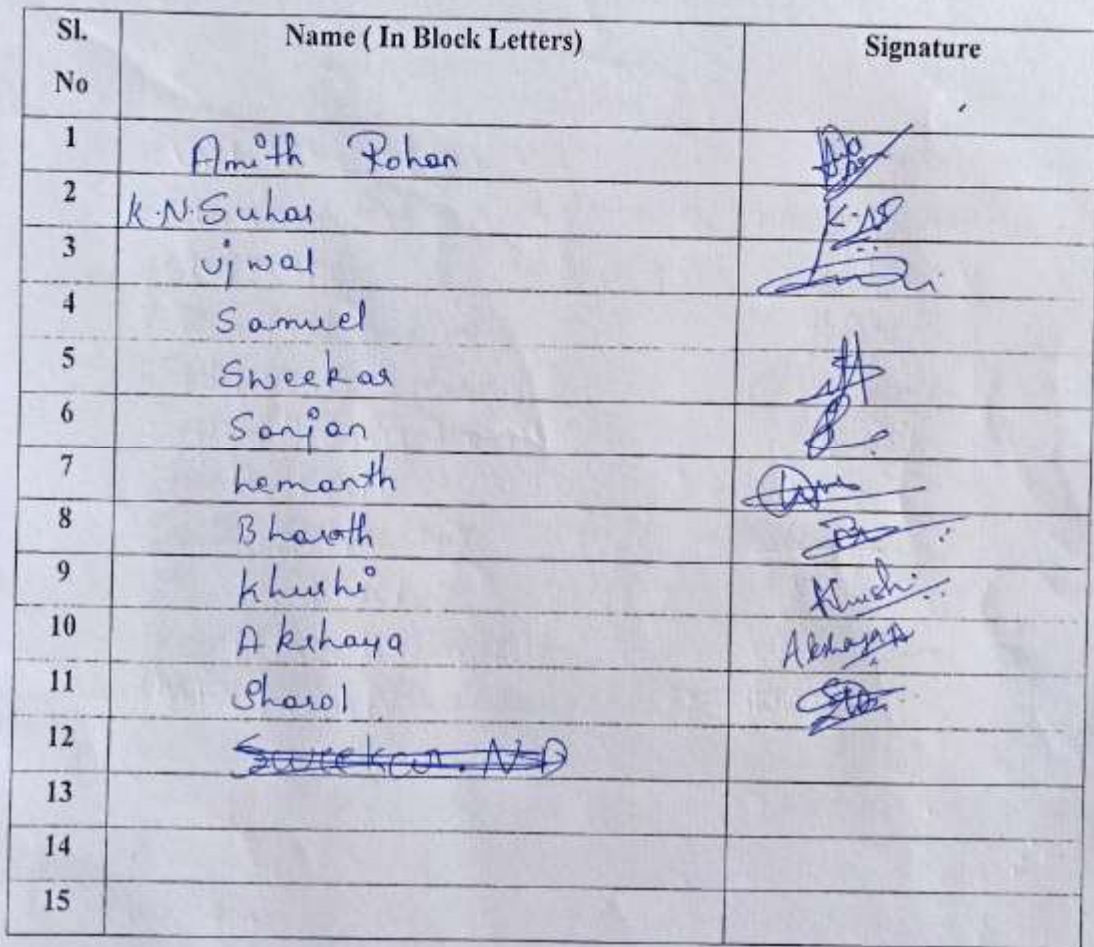 Sl. No Name ( In Block Letters) Signature
1 Amith Rohan
2 K.N.Suhas K.NS
3 Ujwal
4 Samuel
5 Sweekar
6 Sanjan
7 hemanth
8 Bharath
9 Khushi Khushi
10 Akshaya Akshaya
11 Sharol
12 Sweekar. N D
13
14
15